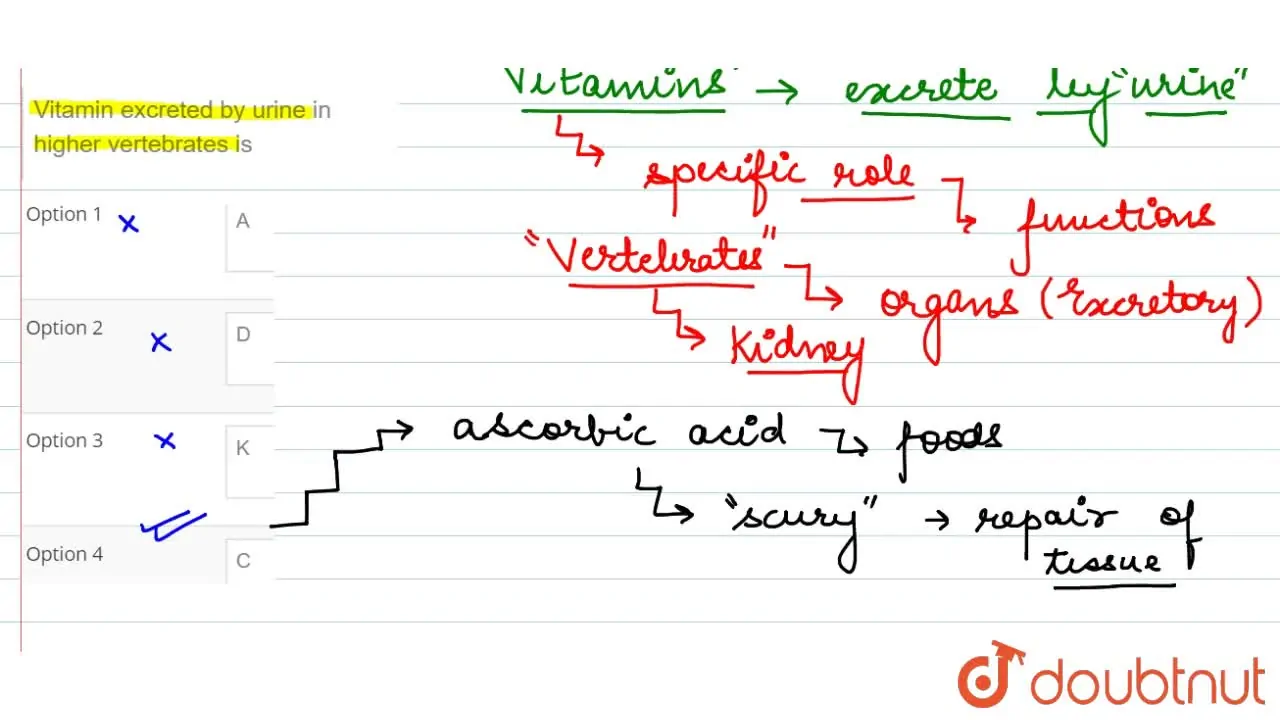 Vitamins → excrete by "urine"
Vitamin excreted by urine in
higher vertebrates is
specific role
functions
Option 1
A
"Vertebrates"
organs (Excretory)
Option 2
D
Kidney
Option 3
K
ascorbic acid
foods
"scury" → repair of
tissue
Option 4
C
doubtnut